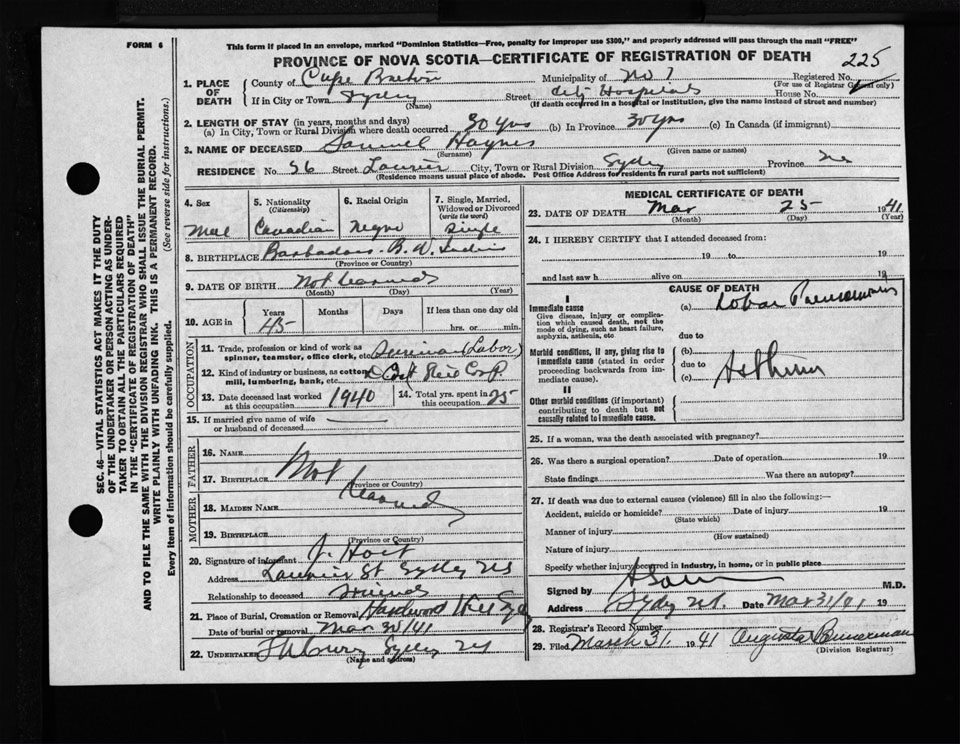 FORM 6
This form if placed in an envelope, marked "Dominion Statistics—Free, penalty for improper use $300," and properly addressed will pass through the mail "FREE"
PROVINCE OF NOVA SCOTIA—CERTIFICATE OF REGISTRATION OF DEATH
225
1. PLACE OF DEATH
County of Cape Breton Municipality of No 7 Registered No.
(For use of Registrar General only)
If in City or Town Sydney Street City Hospital House No.
(Name) (If death occurred in a hospital or institution, give the name instead of street and number)
2. LENGTH OF STAY (in years, months and days)
(a) In City, Town or Rural Division where death occurred 30 yrs (b) In Province 30 yrs (c) In Canada (if immigrant)
3. NAME OF DECEASED Samuel Haynes
(Surname) (Given name or names)
RESIDENCE No. 56 Street Laurier City, Town or Rural Division Sydney Province NS
(Residence means usual place of abode. Post Office Address for residents in rural parts not sufficient)
4. Sex
Male
5. Nationality (Citizenship)
Canadian
6. Racial Origin
Negro
7. Single, Married, Widowed or Divorced (write the word)
Single
8. BIRTHPLACE Barbados B. W. Indies
(Province or Country)
9. DATE OF BIRTH Not learned
(Month) (Day) (Year)
10. AGE in
Years Months Days If less than one day old
45 hrs. or min.
OCCUPATION
11. Trade, profession or kind of work as spinner, teamster, office clerk, etc. (Labor)
12. Kind of industry or business, as cotton mill, lumbering, bank, etc. Corp
13. Date deceased last worked at this occupation 1940
14. Total yrs. spent in this occupation 25
15. If married give name of wife or husband of deceased
FATHER
16. NAME
Not learned
17. BIRTHPLACE
(Province or Country)
MOTHER
18. MAIDEN NAME
19. BIRTHPLACE
(Province or Country)
20. Signature of informant J. Hoit
Address Laurier St Sydney NS
Relationship to deceased friend
21. Place of Burial, Cremation or Removal Hardwood Hill Sydney
Date of burial or removal Mar 30/41
22. UNDERTAKER Sydney NS
(Name and address)
MEDICAL CERTIFICATE OF DEATH
23. DATE OF DEATH Mar 25 1941
(Month) (Day) (Year)
24. I HEREBY CERTIFY that I attended deceased from:
19 to 19
and last saw h alive on 19
CAUSE OF DEATH
I
Immediate cause
Give disease, injury or complication which caused death, not the mode of dying, such as heart failure, asphyxia, asthenia, etc.
(a) Lobar Pneumonia
due to
Morbid conditions, if any, giving rise to immediate cause (stated in order proceeding backwards from immediate cause).
(b)
due to
(c) Asthma
II
Other morbid conditions (if important) contributing to death but not causally related to immediate cause.
25. If a woman, was the death associated with pregnancy?
26. Was there a surgical operation? Date of operation 19
State findings Was there an autopsy?
27. If death was due to external causes (violence) fill in also the following:—
Accident, suicide or homicide? Date of injury 19
(State which)
Manner of injury
(How sustained)
Nature of injury
Specify whether injury occurred in industry, in home, or in public place
Signed by M.D.
Address Sydney NS. Date Mar 31/41 19
28. Registrar's Record Number
29. Filed March 31, 1941 Augusta Bannerman
(Division Registrar)
SEC. 46—VITAL STATISTICS ACT MAKES IT THE DUTY
OF THE UNDERTAKER OR PERSON ACTING AS UNDER-
TAKER TO OBTAIN ALL THE PARTICULARS REQUIRED
IN THE "CERTIFICATE OF REGISTRATION OF DEATH"
AND TO FILE THE SAME WITH THE DIVISION REGISTRAR WHO SHALL ISSUE THE BURIAL PERMIT.
WRITE PLAINLY WITH UNFADING INK. THIS IS A PERMANENT RECORD.
Every item of information should be carefully supplied. (See reverse side for instructions.)